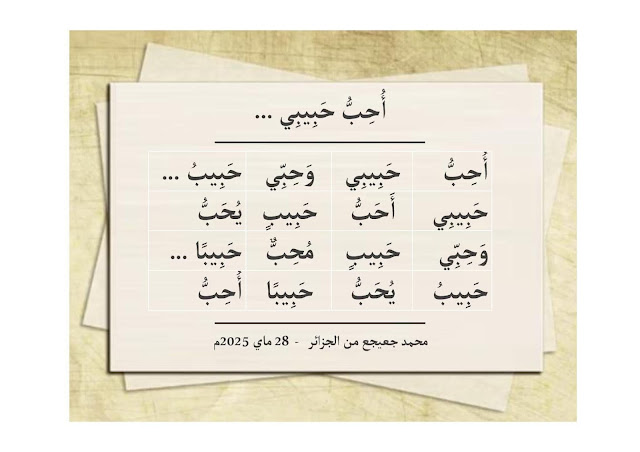 أُحِبُّ حَبِيبِي ...
أُحِبُّ حَبِيبِي وَحِبِّي حَبِيبُ ...
حَبِيبِي أَحَبُّ حَبِيبٍ يُحَبُّ
وَحِبِّي حَبِيبٍ مُحِبٌّ حَبِيبًا ...
حَبِيبُ يُحَبُّ حَبِيبًا أُحِبُّ
محمد جعيجع من الجزائر - 28 ماي 2025م